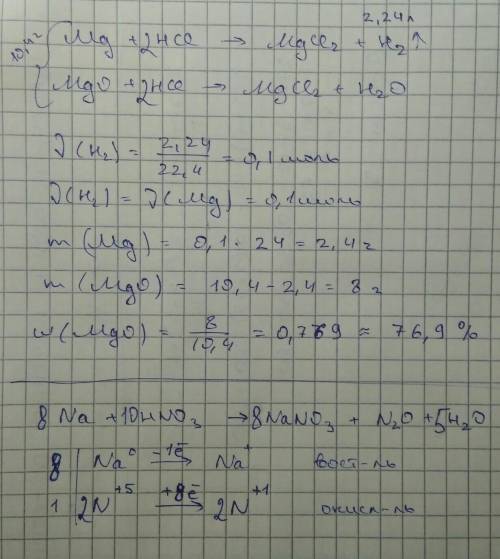 2,24л
10,4г
Mg + 2HCl → MgCl₂ + H₂↑
MgO + 2HCl → MgCl₂ + H₂O
ν(H₂) = 2,24/22,4 = 0,1 моль
ν(H₂) = ν(Mg) = 0,1 моль
m(Mg) = 0,1 · 24 = 2,4 г
m(MgO) = 10,4 - 2,4 = 8 г
w(MgO) = 8/10,4 = 0,769 ≈ 76,9 %
8Na + 10HNO₃ → 8NaNO₃ + N₂O + 5H₂O
8 | Na⁰ -1ē → Na⁺ вост-ль
1 | 2N⁺⁵ +8ē → 2N⁺¹ окисл-ль